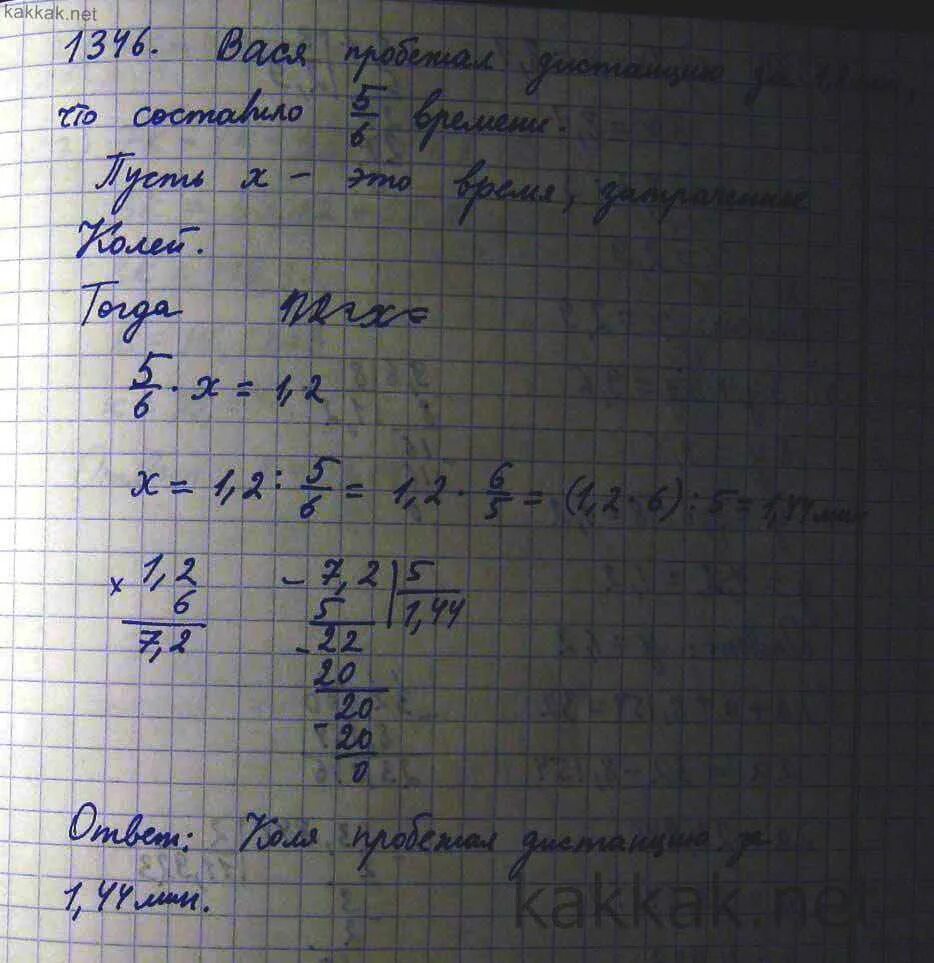 kakkak.net
1346. Вася пробежал дистанцию за
что составило 5/6 времени.
Пусть x – это время, затраченное
Колей.
Тогда
5/6 · x = 1,2
x = 1,2 : 5/6 = 1,2 · 6/5 = (1,2 · 6) : 5 = 1,44 мин
× 1,2      – 7,2 | 5
6      5      1,44
7,2      – 22
20
20
– 20
0
Ответ: Коля пробежал дистанцию за
1,44 мин.
kakkak.net